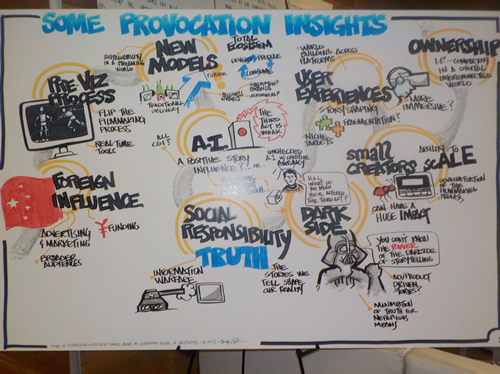 SOME PROVOCATION INSIGHTS
PRE VIZ
PROCESS
FLIP THE
FILMMAKING
PROCESS
REAL TIME
TOOLS
SUSTAINABILITY
IN A
WORLD
NEW
MODELS
FUTURE
TRADITIONAL
DELIVERY
TOTAL
ECOSYSTEM
DEVELOP
PRODUCE
CONSUME
WORLD
BUILDING ACROSS
PLATFORMS
USER
EXPERIENCES
STORYSCAPING
FRAGMENTATION?
NICHE
MARKETS
MORE
IMMERSIVE?
OWNERSHIP
I.P. -
IN A
INTERCONNECTED
WORLD?
ALL
CGI?
A.I.
A POSITIVE STORY
INFLUENCE?
OR
THE
THIRD
ACT IS
WEAK
UNCHECKED
A.I. W/ CREATIVE
AGENCY
H.A.L.
WHAT DO
YOU MEAN
YOU'VE ALTERED
THE THIRD ACT?
SMALL
CREATORS
ABILITY TO SCALE
DEMOCRATIZATION
OF THE
FILMMAKING
PROCESS
CAN HAVE A
HUGE IMPACT
FOREIGN
INFLUENCE
¥ FUNDING
ADVERTISING
& MARKETING
BROADER
AUDIENCES
SOCIAL
RESPONSIBILITY
TRUTH
INFORMATION
WARFARE
THE
STORIES WE
TELL SHAPE
OUR REALITY
DARK
SIDE
YOU DON'T KNOW
THE POWER
OF THE DARKSIDE
OF STORYTELLING
AD/PRODUCT
DRIVEN
STORIES?
MANIPULATION
OF TRUTH FOR
NEFARIOUS
MEANS